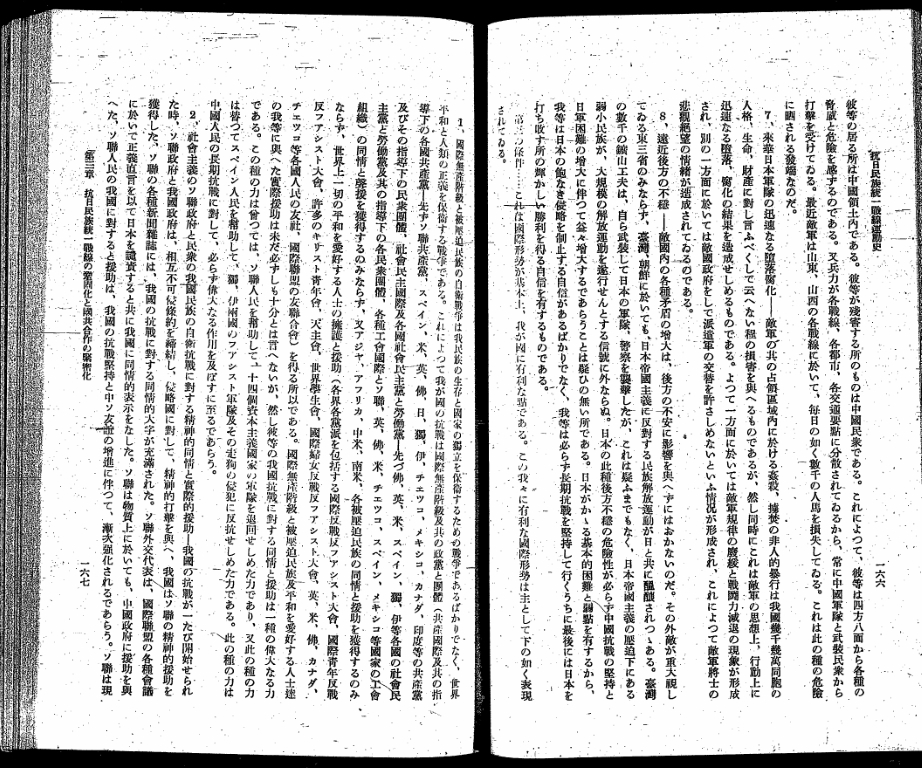 抗日民族統一戰線運動史
一六六
彼等の居る所は中國領土内である。彼等が殘害する所のものは中國民衆である。これによつて、彼等は四方八面から各種の
脅威と危險を感ずるのである。又兵力が各戰線、各都市、各交通要點に分散されてゐるから、常に中國軍隊と武裝民衆から
打擊を受けてゐる。最近敵軍は山東、山西の各戰線に於いて、毎日の如く數千の人馬を損失してゐる。これは此の種の危險
に晒される發端なのだ。
7、來華日本軍隊の迅速なる墮落腐化――敵軍の其の占領區域内に於ける姦殺、擄焚の非人的暴行は我國幾千幾萬同胞の
人格、生命、財產に對し言ふべくして云へない程の損害を與へるものであるが、然し同時にこれは敵軍の思想上、行動上に
迅速なる墮落、腐化の結果を造成せしめるものである。よつて一方面に於いては敵軍規律の廢緩と戰鬪力減退の現象が形成
され、別の一方面に於いては敵國政府をして派遣軍の交替を許さしめないといふ情況が形成され、これによつて敵軍將士の
悲觀絕望の情緒が造成されてゐるのである。
8、遠近後方の不穩――敵國内の各種矛盾の增大は、後方の不安に影響を與へずにはおかないのだ。その外敵が重大視し
てゐる東三省のみならず、臺灣、朝鮮に於いても、日本帝國主義に反對する民族解放運動が日と共に醞釀されつゝある。臺灣
の數千の鑛山工夫は、自ら武裝して日本の軍隊、警察を襲擊したが、これは疑ふまでもなく、日本帝國主義の壓迫下にある
弱小民族が、大規模の解放運動を遂行せんとする信號に外ならぬ。日本の此種後方不穩の危險性が必らず中國抗戰の堅持と
日軍困難の增大に伴つて益々增大するであらうことは疑ひの無い所である。日本がかゝる基本的困難と弱點を有するから、
我等は日本の飽なき侵略を制止する自信があるばかりでなく、我等は必らず長期抗戰を堅持して行くうちに最後には日本を
打ち敗かす所の輝かしい勝利を得る自信を有するものである。
第三の條件――これは國際形勢が基本上、我が國に有利な點である。この我々に有利な國際形勢は主として下の如く表現
されてゐる。
1、國際無產階級と被壓迫民族の自衛戰爭は我民族の生存と國家の獨立を保衛するための戰爭であるばかりでなく、世界
平和と人類の正義を保衛する戰爭である。これによつて我が國の抗戰は國際無產階級及其の政黨と團體(共產國際及其の指
導下の各國共產黨、先ずソ聯共產黨、スペイン、米、英、佛、日、獨、伊、チェツコ、メキシコ、カナダ、印度等の共產黨
及びその指導下の民衆團體、社會民主國際及各國社會民主黨と勞働黨、先づ佛、英、米、スペイン、獨、伊等各國の社會民
主黨と勞働黨及其の指導下の各民衆團體、各種工會國際とソ聯、英、佛、米、チェツコ、スペイン、メキシコ等國家の工會
組織)の同情と聲援を獲得するのみならず、又アジヤ、アフリカ、中米、南米、各被壓迫民族の同情と援助を獲得するのみ
ならず、世界上一切の平和を愛好する人士の擁護と援助(各界各黨派を包括する國際反戰反フアシスト大會、國際青年反戰
反フアシスト大會、許多のキリスト青年會、天主會、世界學生會、國際婦女反戰反フアシスト大會、英、米、佛、カナダ、
チェツコ等各國人民の友社、國際聯盟の友聯合會)を得る所以である。國際無產階級と被壓迫民族及平和を愛好する人士達
の我等に與へた實際援助は未だ必ずしも十分とは言へないが、然し彼等の我國抗戰に對する同情と援助は一種の偉大なる力
である。この種の力は曾つては、ソ聯人民を幫助して、十四個資本主義國家の軍隊を退回せしめた力であり、又此の種の力
は替つてスペイン人民を幫助して、獨、伊兩國のフアシスト軍隊及その走狗の侵犯に反抗せしめた力である。此の種の力は
中國人民の長期抗戰に對して、必らず偉大なる作用を及ぼすに至るであらう。
2、社會主義のソ聯政府と民衆の我國民族の自衛抗戰に對する精神的同情と實際的援助―我國の抗戰が一たび開始せられ
た時、ソ聯政府と我國政府は、相互不可侵條約を締結し、侵略國に對して、精神的打擊を與へ、我國はソ聯の精神的援助を
獲得した。ソ聯の各種新聞雜誌には、我國の抗戰に對する同情的大字が充滿された。ソ聯外交代表は、國際聯盟の各種會議
に於いて正義直言を以て日本を譴責すると共に我國に同情的表示をなした。ソ聯は物質上に於いても、中國政府に援助を與
へた、ソ聯人民の我國に對する同情と援助は、我國の抗戰堅持と中ソ友誼の增進に伴つて、漸次强化されるであらう。ソ聯は現
第三章 抗日民族統一戰線の鞏固化と國共合作の緊密化
一六七